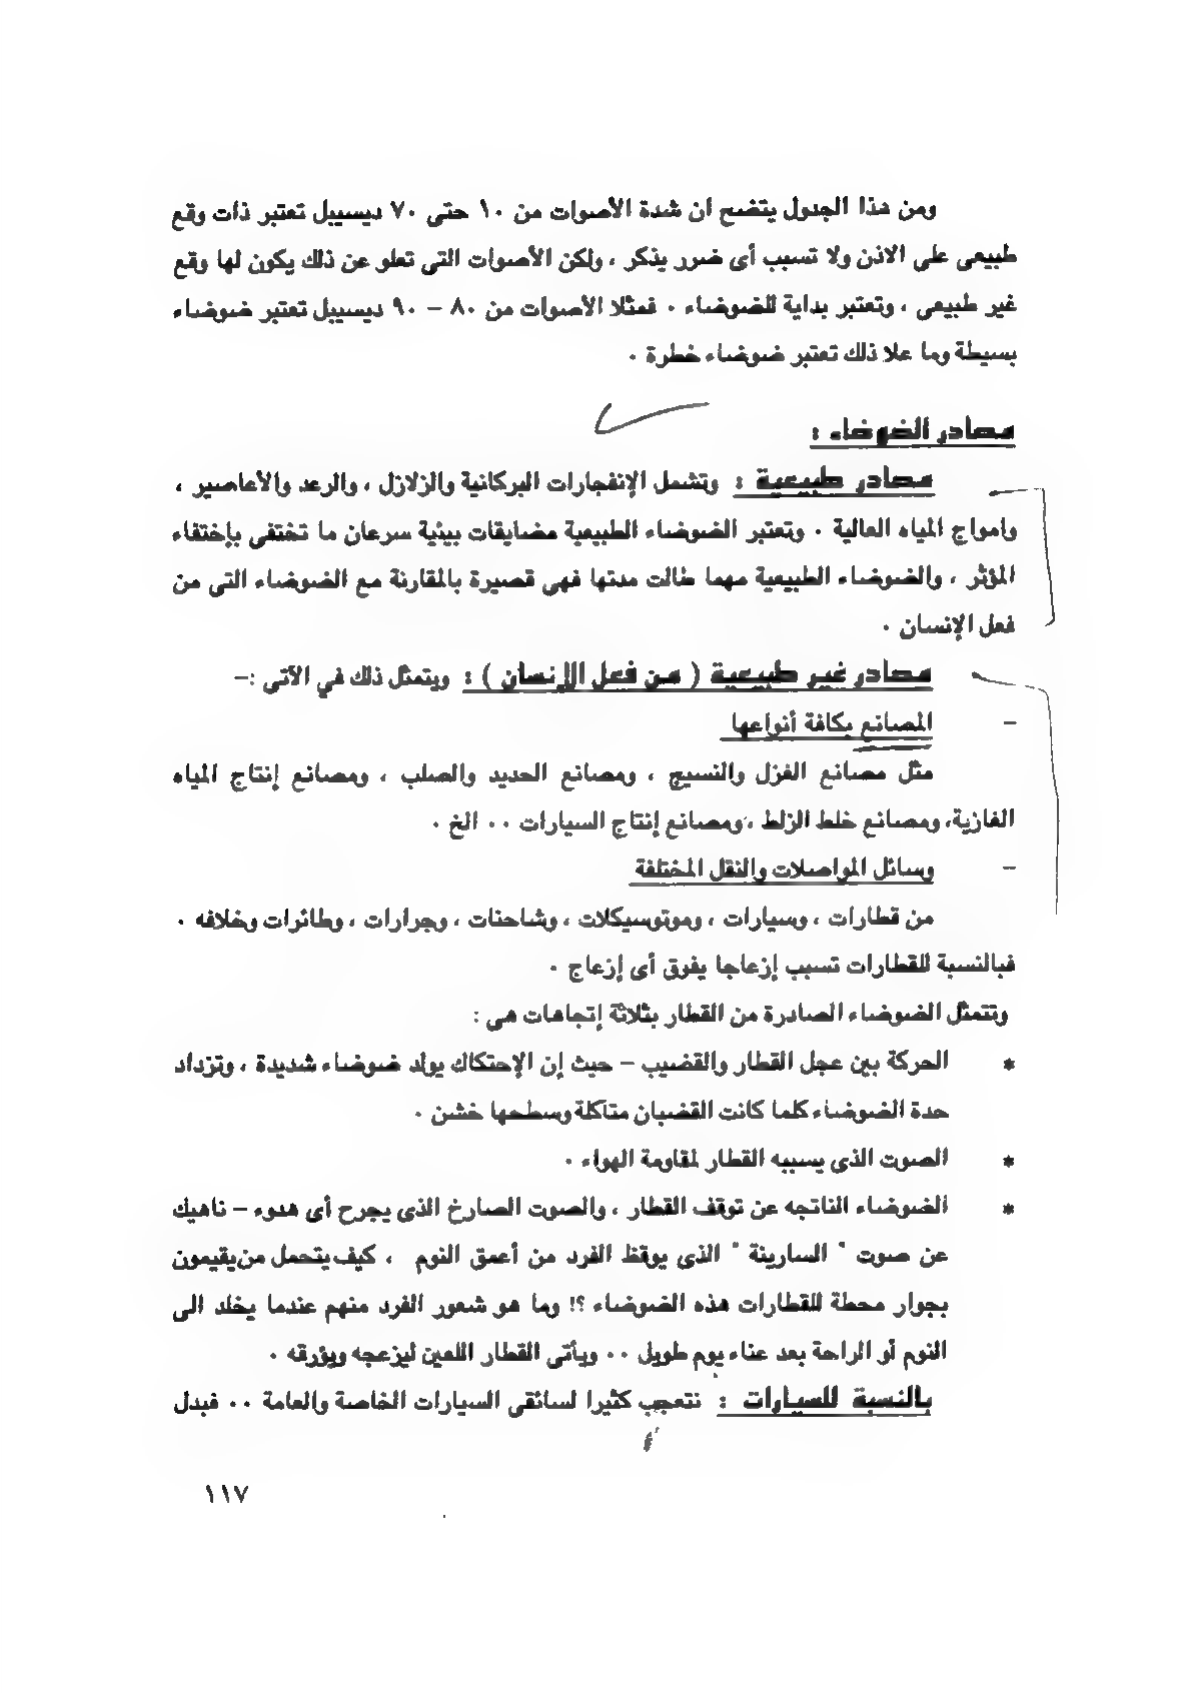 ومن هذا الجدول يتضح ان شدة الأصوات من ١٠ حتى ٧٠ ديسيبل تعتبر ذات وقع
طبيعى على الاذن ولا تسبب أى ضرر يذكر ، ولكن الأصوات التى تعلو عن ذلك يكون لها وقع
غير طبيعى ، وتعتبر بداية للضوضاء ٠ فمثلا الأصوات من ٨٠ – ٩٠ ديسيبل تعتبر ضوضاء
بسيطة وما علا ذلك تعتبر ضوضاء خطرة ٠
مصادر الضوضاء :
مصادر طبيعية : وتشمل الإنفجارات البركانية والزلازل ، والرعد والأعاصير ،
وامواج المياه العالية ٠ وتعتبر الضوضاء الطبيعية مضايقات بيئية سرعان ما تختفى بإختفاء
المؤثر ، والضوضاء الطبيعية مهما طالت مدتها فهى قصيرة بالمقارنة مع الضوضاء التى من
فعل الإنسان ٠
مصادر غير طبيعية ( من فعل الإنسان ) : ويتمثل ذلك في الآتى :–
– المصانع بكافة أنواعها
مثل مصانع الغزل والنسيج ، ومصانع الحديد والصلب ، ومصانع إنتاج المياه
الغازية، ومصانع خلط الزلط ، ومصانع إنتاج السيارات ٠٠ الخ ٠
– وسائل المواصلات والنقل المختلفة
من قطارات ، وسيارات ، وموتوسيكلات ، وشاحنات ، وجرارات ، وطائرات وخلافه ٠
فبالنسبة للقطارات تسبب إزعاجا يفرق أى إزعاج ٠
وتتمثل الضوضاء الصادرة من القطار بثلاثة إتجاهات هى :
* الحركة بين عجل القطار والقضيب – حيث إن الإحتكاك يولد ضوضاء شديدة ، وتزداد
حدة الضوضاء كلما كانت القضبان متآكلة وسطحها خشن ٠
* الصوت الذى يسببه القطار لمقاومة الهواء ٠
* الضوضاء الناتجه عن توقف القطار ، والصوت الصارخ الذى يجرح أى هدوء – ناهيك
عن صوت " السارينة " الذى يوقظ الفرد من أعمق النوم ، كيف يتحمل من يقيمون
بجوار محطة للقطارات هذه الضوضاء ؟! وما هو شعور الفرد منهم عندما يخلد الى
النوم أو الراحة بعد عناء يوم طويل ٠٠ ويأتى القطار اللعين ليزعجه ويؤرقه ٠
بالنسبة للسيارات : نتعجب كثيرا لسائقى السيارات الخاصة والعامة ٠٠ فبدل
١١٧